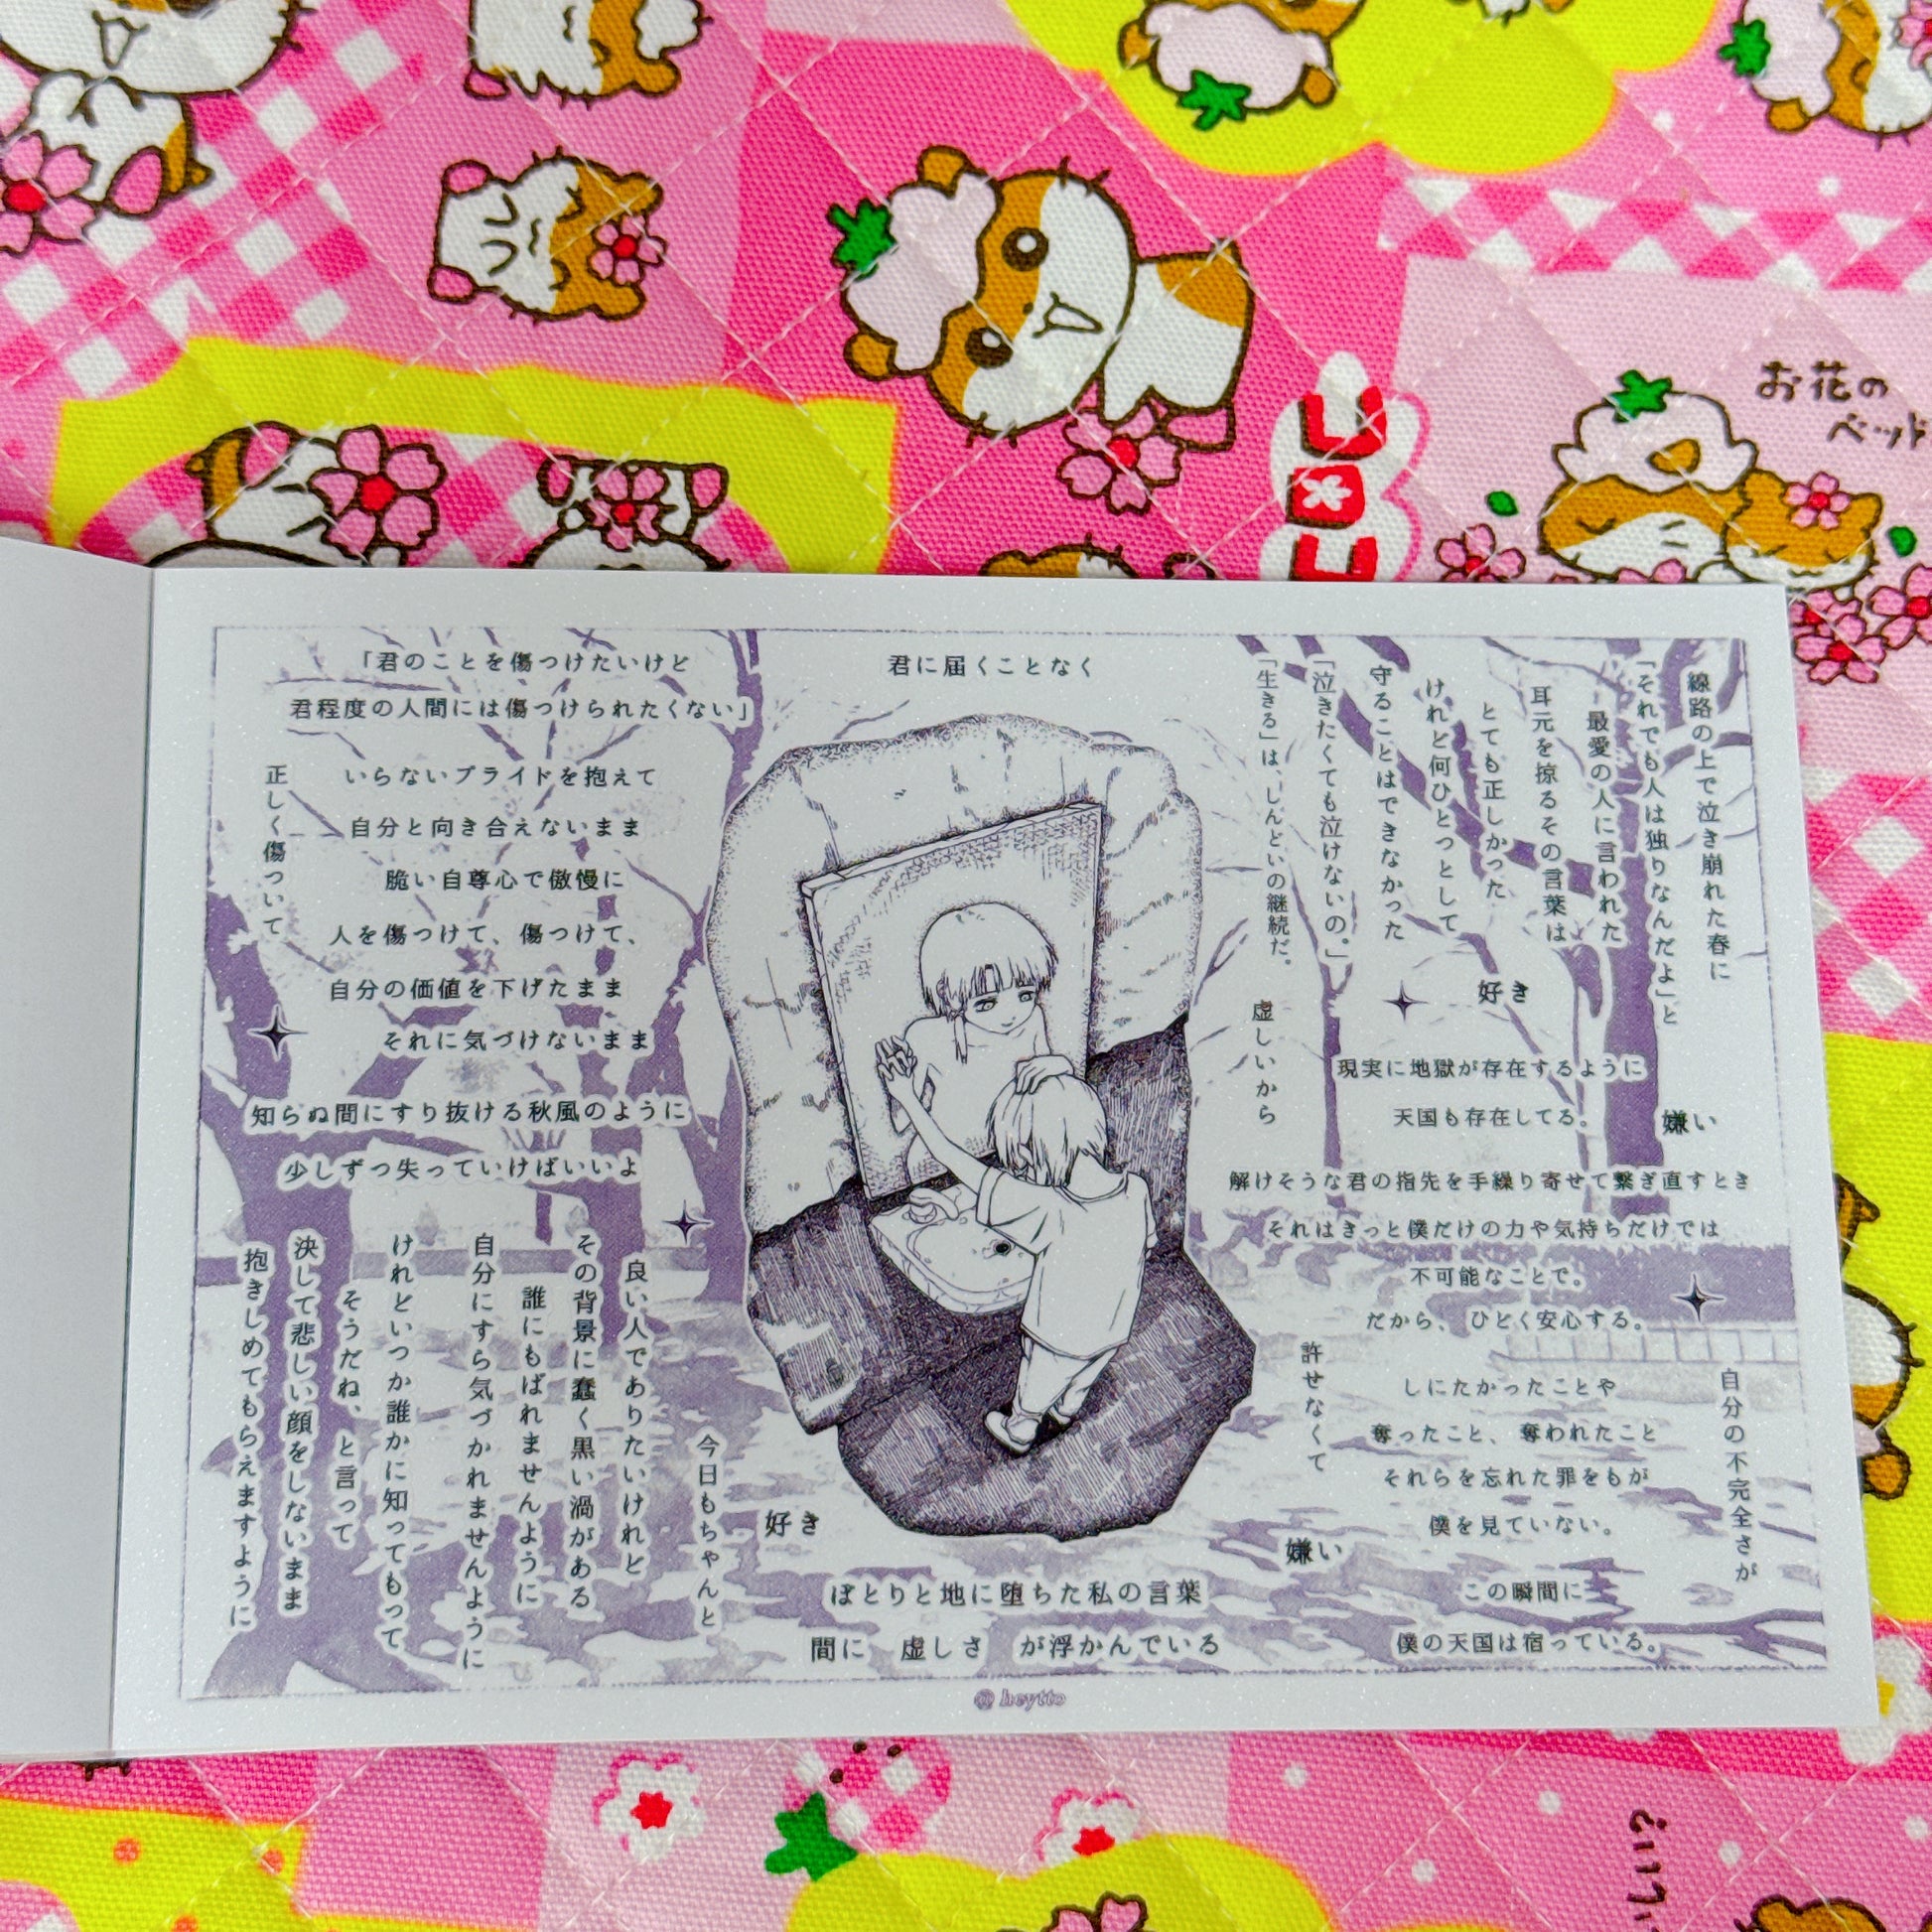 コロコロ
お花の
ベッド
「君のことを傷つけたいけど
君程度の人間には傷つけられたくない」
正しく傷ついて
いらないプライドを抱えて
自分と向き合えないまま
脆い自尊心で傲慢に
人を傷つけて、傷つけて、
自分の価値を下げたまま
それに気づけないまま
知らぬ間にすり抜ける秋風のように
少しずつ失っていけばいいよ
今日もちゃんと
良い人でありたいけれど
その背景に蠢く黒い渦がある
誰にもばれませんように
自分にすら気づかれませんように
けれどいつか誰かに知ってもらって
そうだね、と言って
決して悲しい顔をしないまま
抱きしめてもらえますように
君に届くことなく
好き
ぽとりと地に堕ちた私の言葉
間に 虚しさ が浮かんでいる
嫌い
線路の上で泣き崩れた春に
「それでも人は独りなんだよ」と
最愛の人に言われた
耳元を掠るその言葉は
とても正しかった
けれど何ひとつとして
守ることはできなかった
「泣きたくても泣けないの。」
「生きる」は、しんどいの継続だ。
虚しいから
好き
現実に地獄が存在するように
天国も存在してる。
嫌い
解けそうな君の指先を手繰り寄せて繋ぎ直すとき
それはきっと僕だけの力や気持ちだけでは
不可能なことで。
だから、ひどく安心する。
自分の不完全さが
許せなくて
しにたかったことや
奪ったこと、奪われたこと
それらを忘れた罪をもが
僕を見ていない。
この瞬間に
僕の天国は宿っている。
@heytto